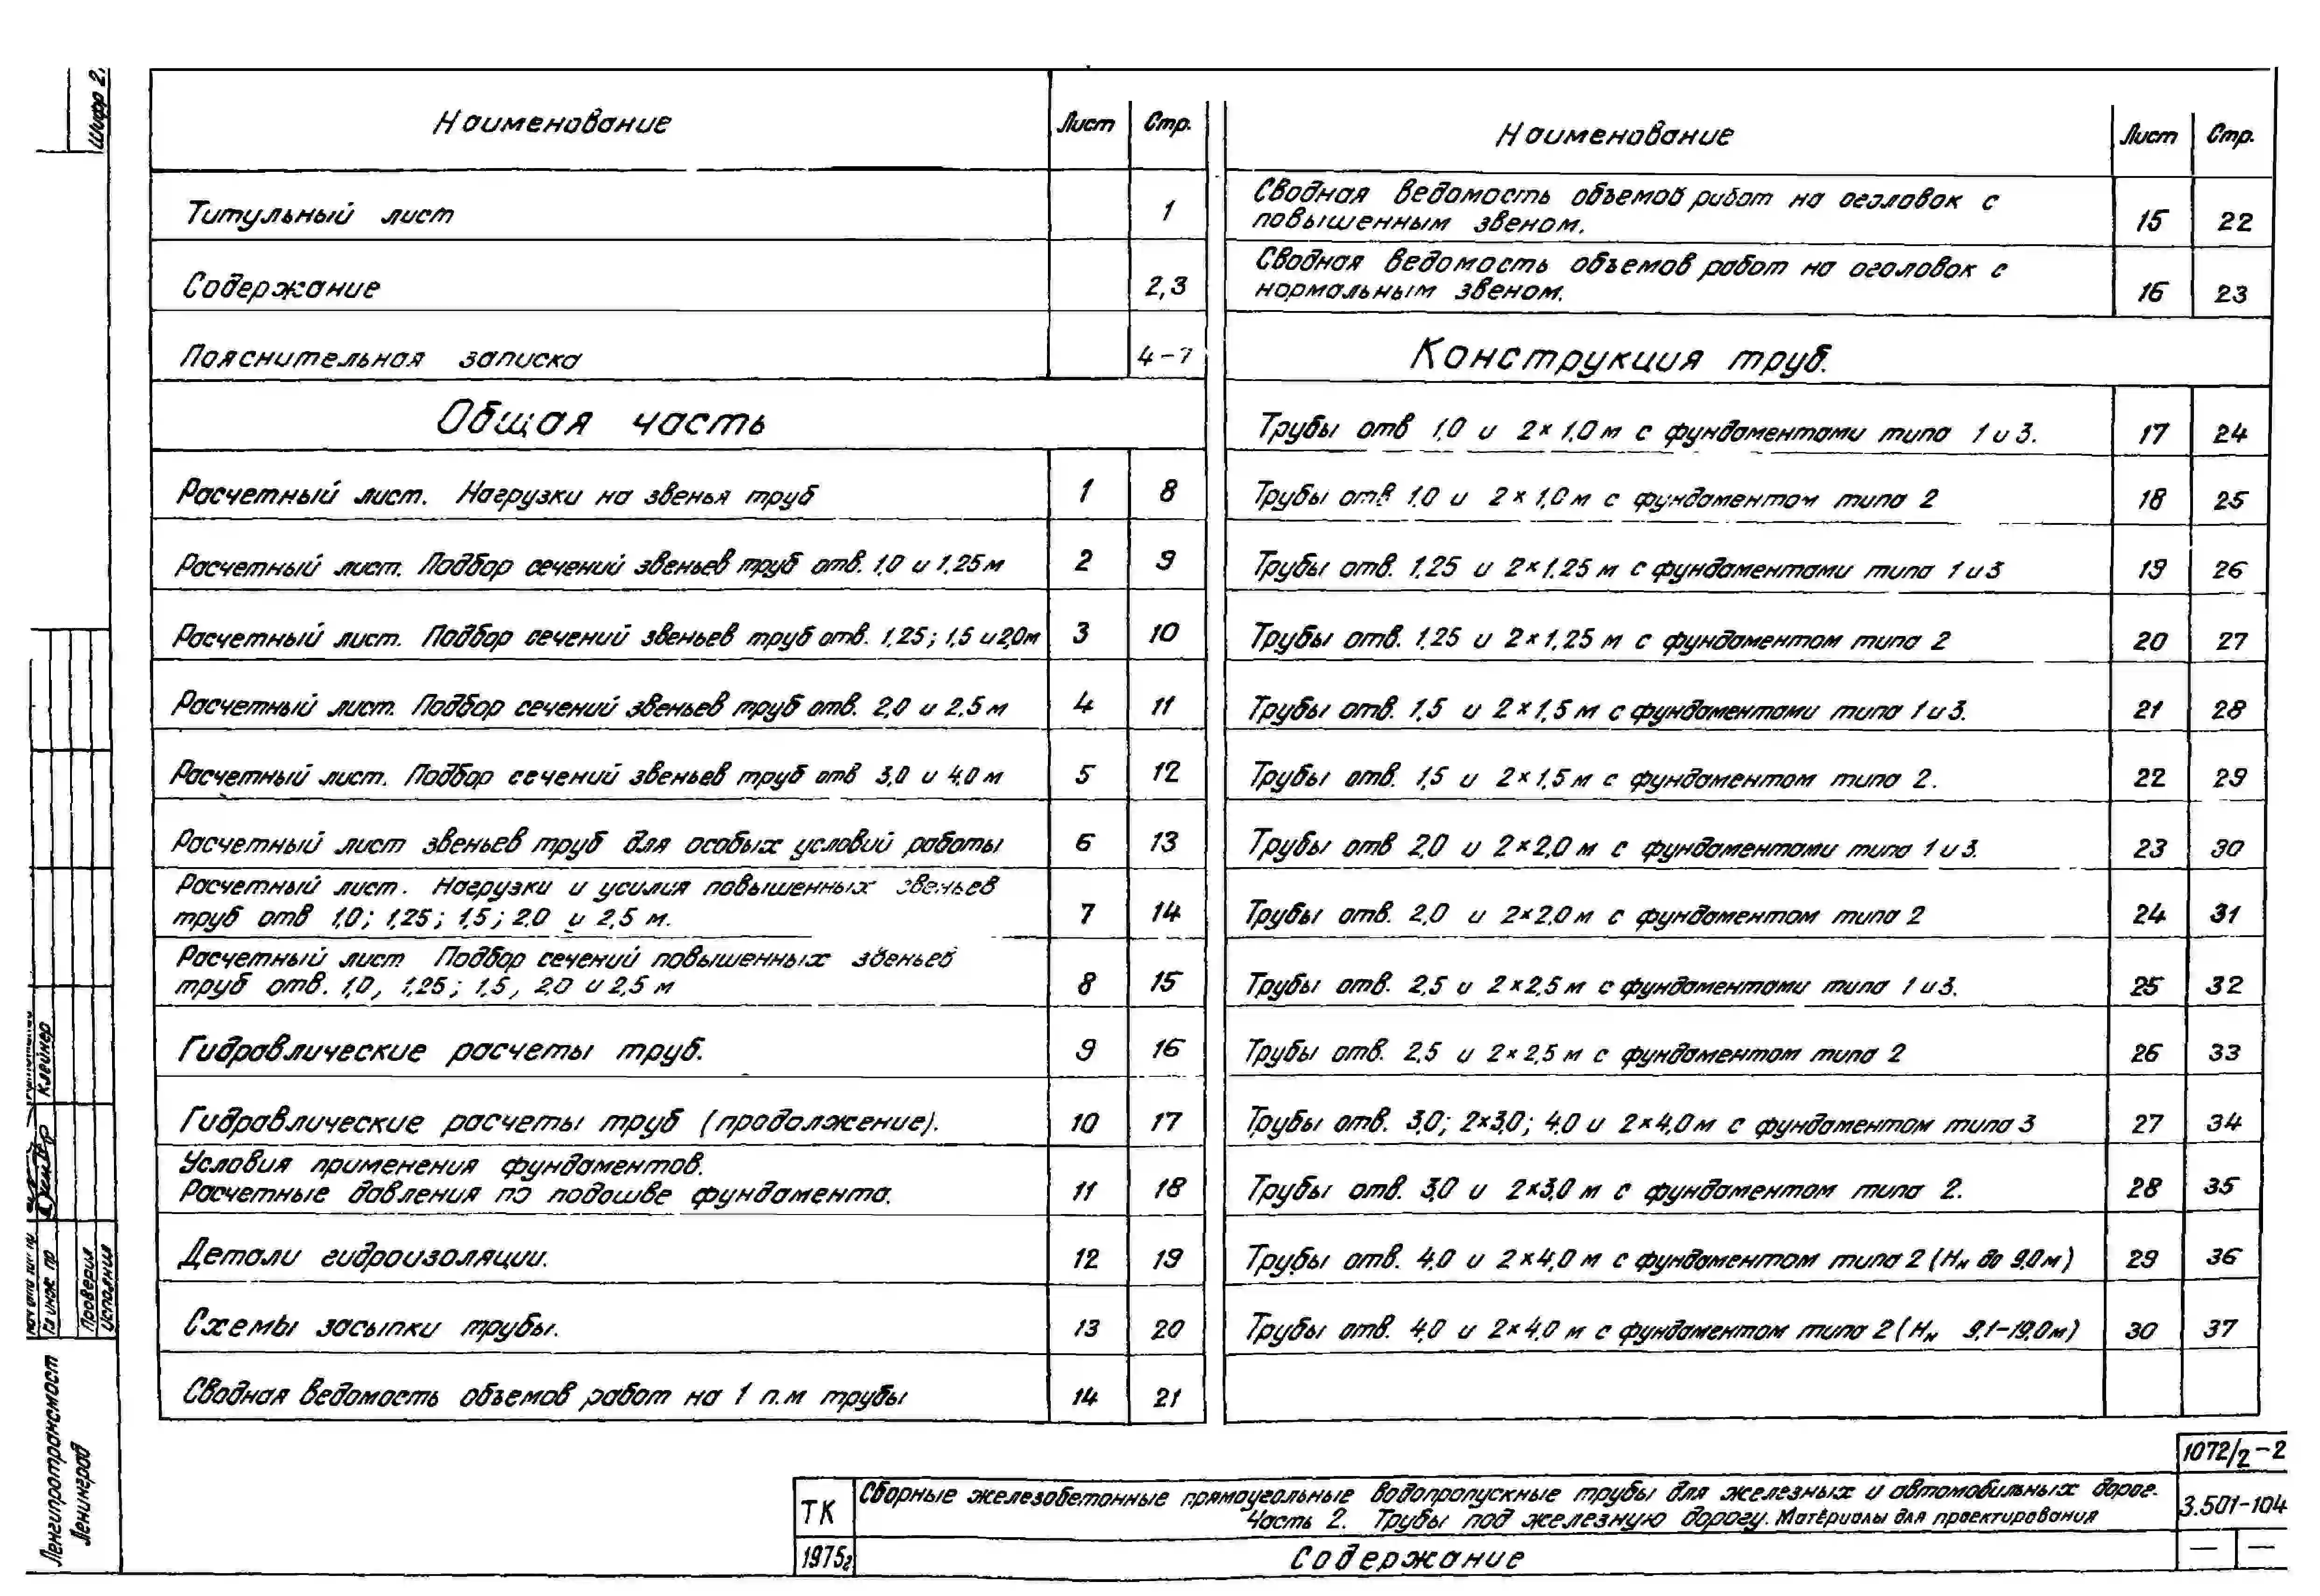 Шифр 2
Наименование Лист Стр.
Титульный лист 1
Содержание 2,3
Пояснительная записка 4-7
Общая часть
Расчетный лист. Нагрузки на звенья труб 1 8
Расчетный лист. Подбор сечений звеньев труб отв. 1,0 и 1,25 м 2 9
Расчетный лист. Подбор сечений звеньев труб отв. 1,25; 1,5 и 2,0м 3 10
Расчетный лист. Подбор сечений звеньев труб отв. 2,0 и 2,5 м 4 11
Расчетный лист. Подбор сечений звеньев труб отв 3,0 и 4,0 м 5 12
Расчетный лист звеньев труб для особых условий работы 6 13
Расчетный лист. Нагрузки и усилия повышенных звеньев
труб отв 1,0; 1,25; 1,5; 2,0 и 2,5 м. 7 14
Расчетный лист Подбор сечений повышенных звеньев
труб отв. 1,0, 1,25; 1,5, 2,0 и 2,5 м 8 15
Гидравлические расчеты труб. 9 16
Гидравлические расчеты труб (продолжение). 10 17
Условия применения фундаментов.
Расчетные давления по подошве фундамента. 11 18
Детали гидроизоляции. 12 19
Схемы засыпки трубы. 13 20
Сводная ведомость объемов работ на 1 п.м трубы 14 21
Наименование Лист Стр.
Сводная ведомость объемов работ на оголовок с
повышенным звеном. 15 22
Сводная ведомость объемов работ на оголовок с
нормальным звеном. 16 23
Конструкция труб.
Трубы отв 1,0 и 2×1,0 м с фундаментами типа 1 и 3. 17 24
Трубы отв 1,0 и 2×1,0 м с фундаментом типа 2 18 25
Трубы отв. 1,25 и 2×1,25 м с фундаментами типа 1 и 3 19 26
Трубы отв. 1,25 и 2×1,25 м с фундаментом типа 2 20 27
Трубы отв. 1,5 и 2×1,5 м с фундаментами типа 1 и 3. 21 28
Трубы отв. 1,5 и 2×1,5 м с фундаментом типа 2. 22 29
Трубы отв 2,0 и 2×2,0 м с фундаментами типа 1 и 3. 23 30
Трубы отв. 2,0 и 2×2,0 м с фундаментом типа 2 24 31
Трубы отв. 2,5 и 2×2,5 м с фундаментами типа 1 и 3. 25 32
Трубы отв. 2,5 и 2×2,5 м с фундаментом типа 2 26 33
Трубы отв. 3,0; 2×3,0; 4,0 и 2×4,0 м с фундаментом типа 3 27 34
Трубы отв. 3,0 и 2×3,0 м с фундаментом типа 2. 28 35
Трубы отв. 4,0 и 2×4,0 м с фундаментом типа 2 (Hн до 9,0 м) 29 36
Трубы отв. 4,0 и 2×4,0 м с фундаментом типа 2 (Hн 9,1-19,0 м) 30 37
Клейнер
Гл инж пр
Проверил
Исполнил
Ленгипротрансмост
Ленинград
1072/2-2
ТК
Сборные железобетонные прямоугольные водопропускные трубы для железных и автомобильных дорог.
Часть 2. Трубы под железную дорогу. Материалы для проектирования
3.501-104
1975г
Содержание
— —